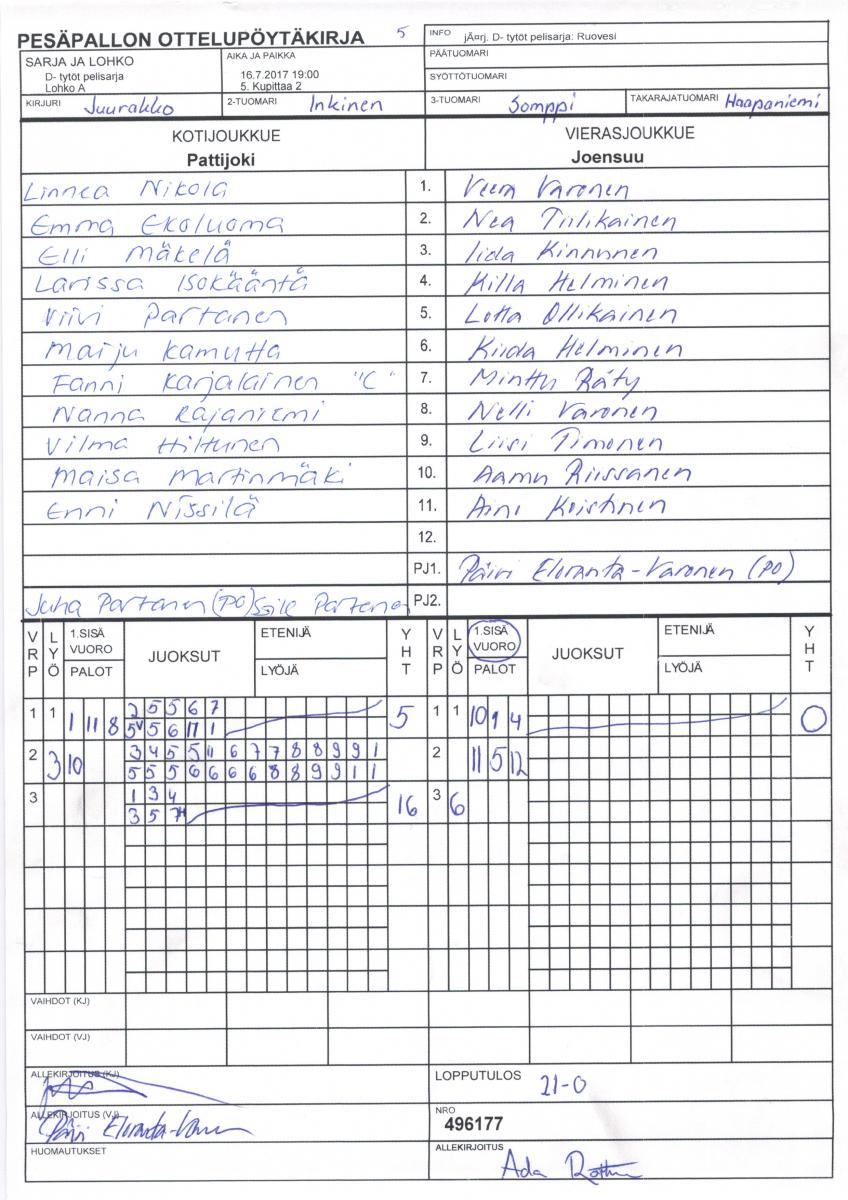 PESÄPALLON OTTELUPÖYTÄKIRJA 5
INFO jÃ¤rj. D- tytöt pelisarja: Ruovesi
PÄÄTUOMARI
SYÖTTÖTUOMARI
SARJA JA LOHKO
D- tytöt pelisarja
Lohko A
AIKA JA PAIKKA
16.7.2017 19:00
5. Kupittaa 2
KIRJURI Juurakko 2-TUOMARI Inkinen 3-TUOMARI Somppi TAKARAJATUOMARI Haapaniemi
KOTIJOUKKUE VIERASJOUKKUE
Pattijoki Joensuu
Linnea Nikola 1. Veera Varonen
Emma Ekoluoma 2. Nea Tiilikainen
Elli Mäkelä 3. Iida Kinnunen
Larissa Isokääntä 4. Milla Helminen
Viivi Partanen 5. Lotta Ollikainen
Maiju Kamutta 6. Kiida Helminen
Fanni Karjalainen "C" 7. Minttu Räty
Nanna Rajaniemi 8. Nelli Varonen
Vilma Hiltunen 9. Liisi Timonen
Maisa Martinmäki 10. Aamu Riissanen
Enni Nissilä 11. Aino Koistinen
12.
PJ1. Päivi Eloranta-Varonen (PO)
Juha Partanen (PO) Partanen PJ2.
VRP LYÖ 1.SISÄ VUORO PALOT JUOKSUT ETENIJÄ LYÖJÄ YHT VRP LYÖ 1.SISÄ VUORO PALOT JUOKSUT ETENIJÄ LYÖJÄ YHT
1 1 1 11 8 2 5 5 6 7 5 1 1 10 1 4 0
5 5 6 11 1
2 3 10 3 4 5 5 11 6 7 7 8 8 9 9 1 2 11 5 12
5 5 5 6 6 6 6 8 8 9 9 1 1
3 1 3 4 16 3 6
3 5 7
VAIHDOT (KJ)
VAIHDOT (VJ)
ALLEKIRJOITUS (KJ) LOPPUTULOS 21-0
ALLEKIRJOITUS (VJ) Päivi Eloranta-Varonen NRO 496177
HUOMAUTUKSET ALLEKIRJOITUS Ada